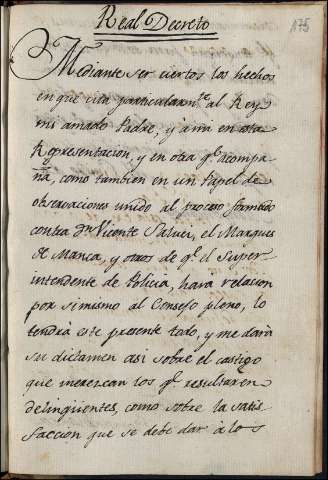 Real Decreto
175
Mediante ser ciertos los hechos
en que cita particularm.te al Rey
mi amado Padre, y a mi en esta
Representacion, y en otra q.e acompa-
ña, como tambien en un Papel de
observaciones unido al proceso formado
contra D.n Vicente Saluci, el Marques
de Manca, y otros de q.e el Super-
intendente de Policia, hará relacion
por si mismo al Consejo pleno, lo
tendrá este presente todo, y me dará
su dictamen asi sobre el castigo
que merezcan los q.e resultaren
delinqüentes, como sobre la satis-
faccion que se debe dar à los